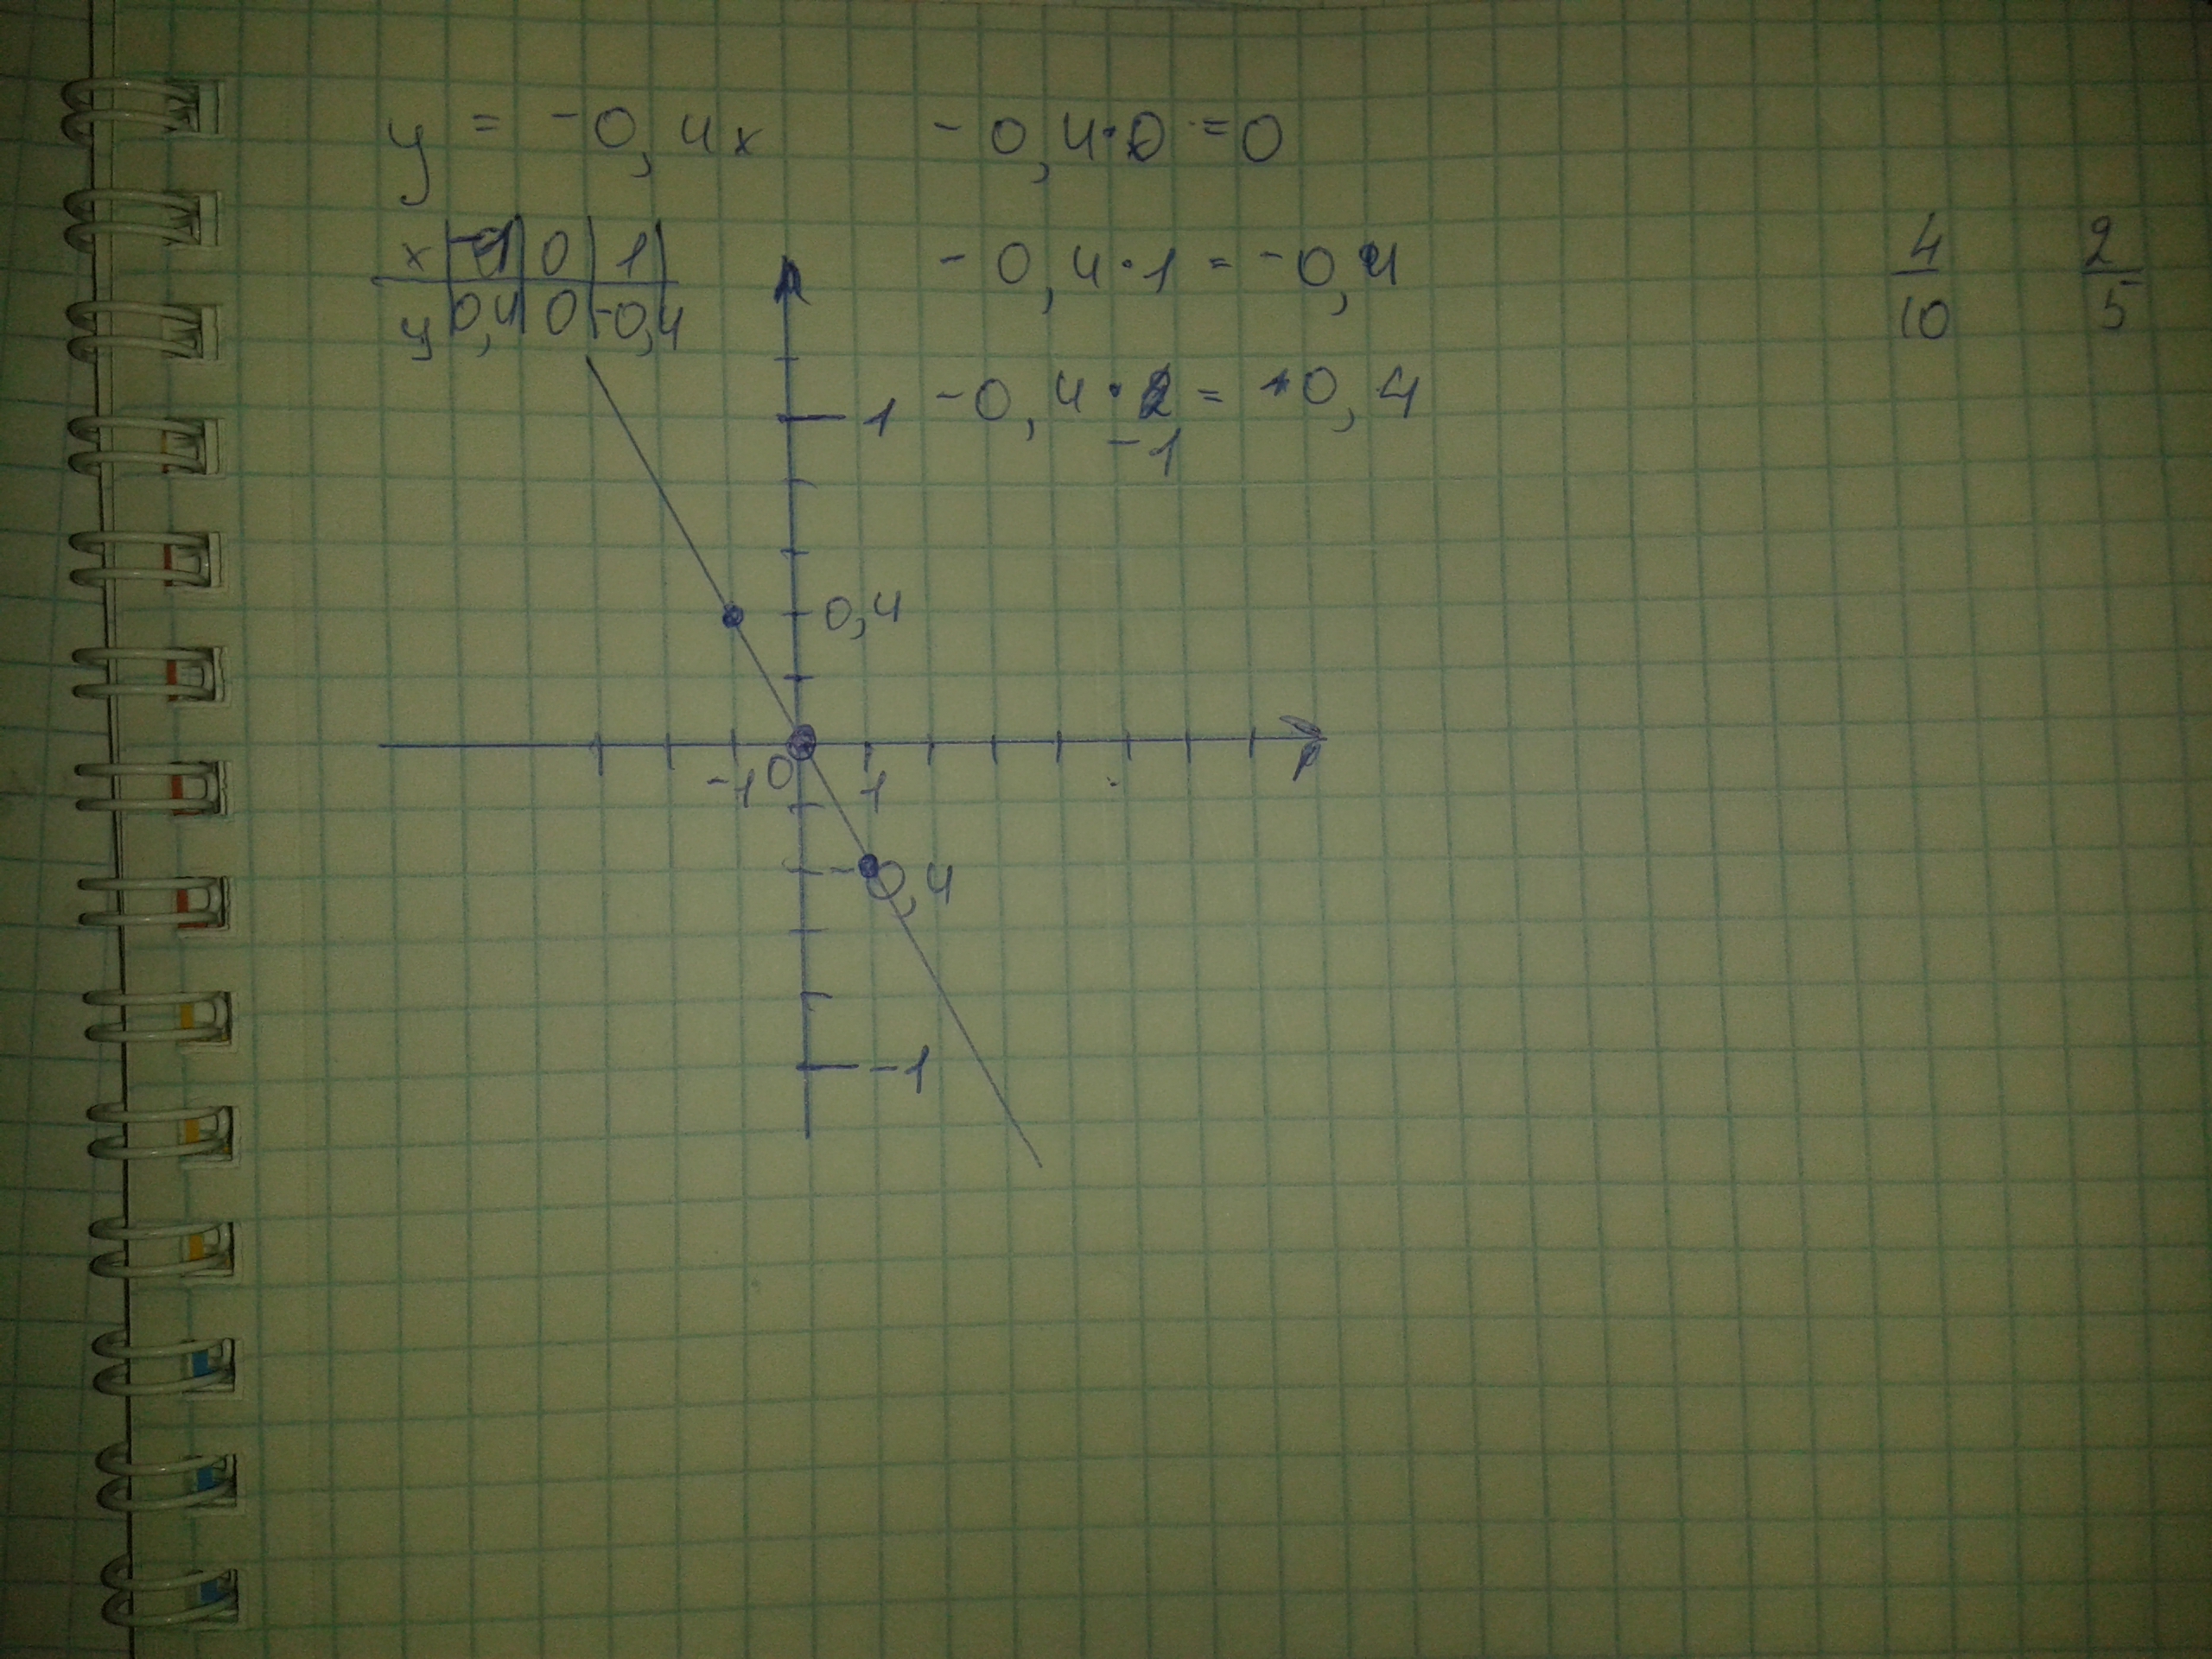 y = -0,4x -0,4·0 = 0
x -1 0 1 -0,4·1 = -0,4 4/10 2/5
y 0,4 0 -0,4
1 -0,4· = 0,4
-1
0,4
-1 0 1
-0,4
-1